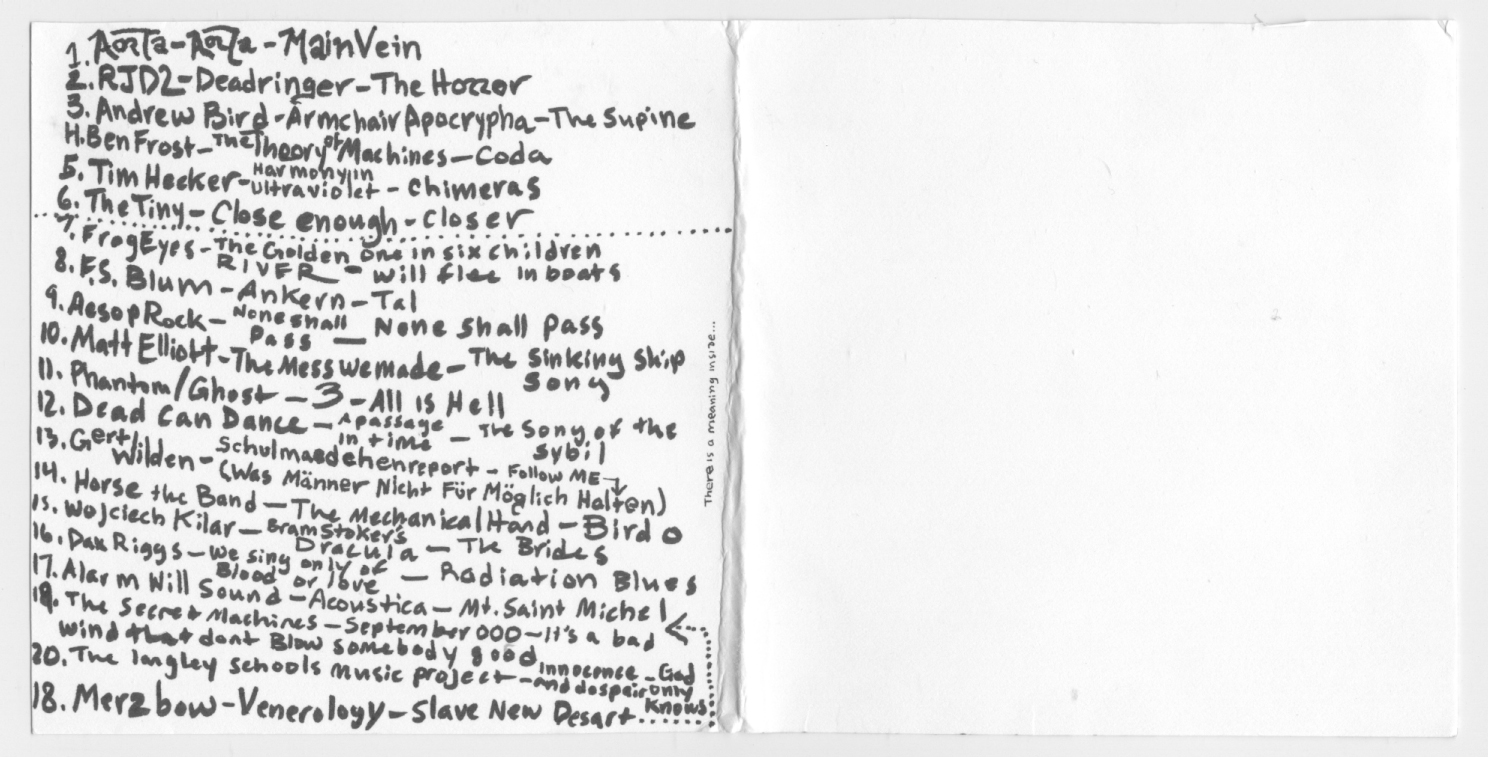 1. Aorta - Aorta - Main Vein
2. RJD2 - Deadringer - The Horror
3. Andrew Bird - Armchair Apocrypha - The Supine
4. Ben Frost - The Theory of Machines - Coda
5. Tim Hecker - Harmony in Ultraviolet - Chimeras
6. The Tiny - Close enough - Closer
7. Frog Eyes - The Golden River - One in six children will flee in boats
8. F.S. Blum - Ankern - Tal
9. Aesop Rock - None shall Pass - None shall Pass
10. Matt Elliott - The Mess we made - The Sinking Ship Song
11. Phantom/Ghost - 3 - All is Hell
12. Dead Can Dance - A passage in time - The Song of the Sybil
13. Gert Wilden - Schulmaedchenreport - Follow ME
(Was Männer Nicht Für Möglich Halten)
14. Horse the Band - The Mechanical Hand - Birdo
15. Wojciech Kilar - Bram Stoker's Dracula - The Brides
16. Dax Riggs - We sing only of Blood or love - Radiation Blues
17. Alarm Will Sound - Acoustica - Mt. Saint Michel
19. The Secret Machines - September 000 - It's a bad
wind that dont Blow somebody good
20. The langley schools Music project - innocence and despair - God only Knows
18. Merzbow - Venerology - Slave New Desart
There is a meaning inside...